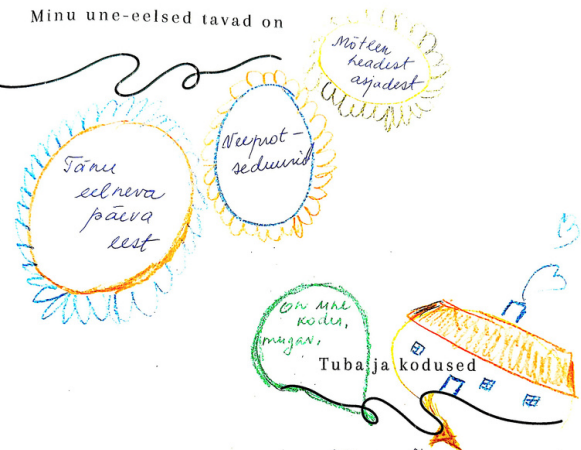 Minu une-eelsed tavad on
Mõtlen
headest
asjadest
Veeprot-
seduurid
Tänu
eelneva
päeva
eest
on une
kodu,
mugav.
Tuba ja kodused